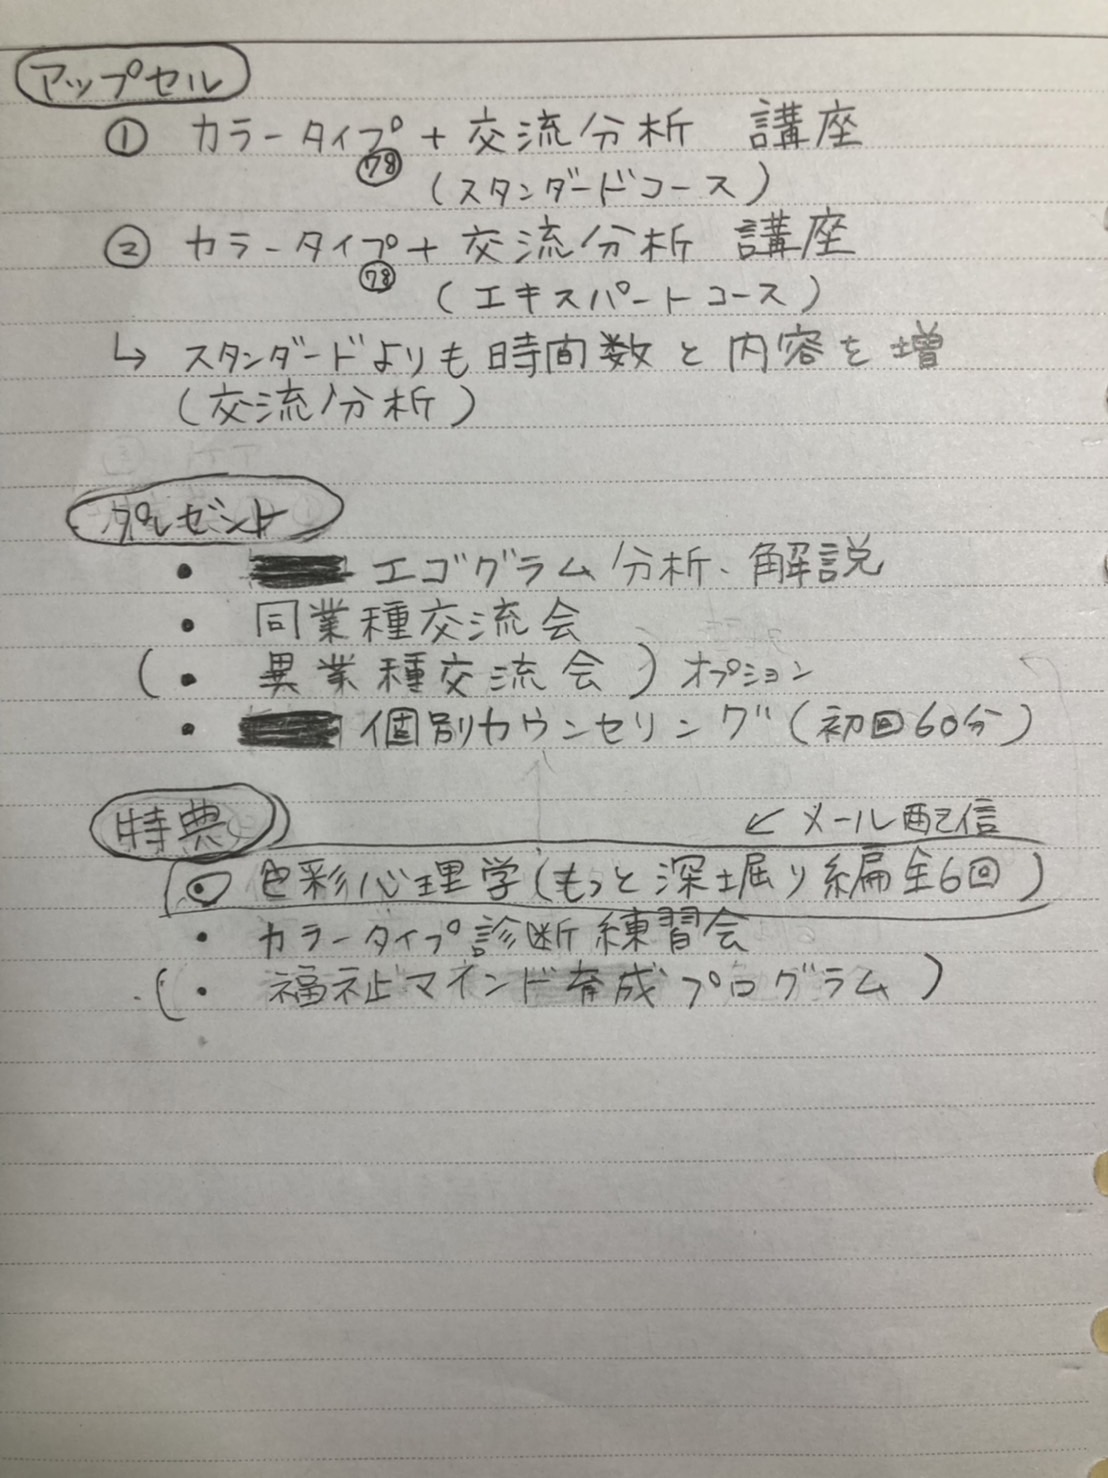 アップセル
① カラータイプ + 交流分析 講座
(スタンダードコース)
② カラータイプ + 交流分析 講座
(エキスパートコース)
↳ スタンダードよりも時間数と内容を増
(交流分析)
プレゼント
・ エゴグラム分析、解説
・ 同業種交流会
(・ 異業種交流会) オプション
・ 個別カウンセリング(初回60分)
特典
↙ メール配信
・ 色彩心理学(もっと深堀り編全6回)
・ カラータイプ診断練習会
(・ 福祉マインド育成プログラム)